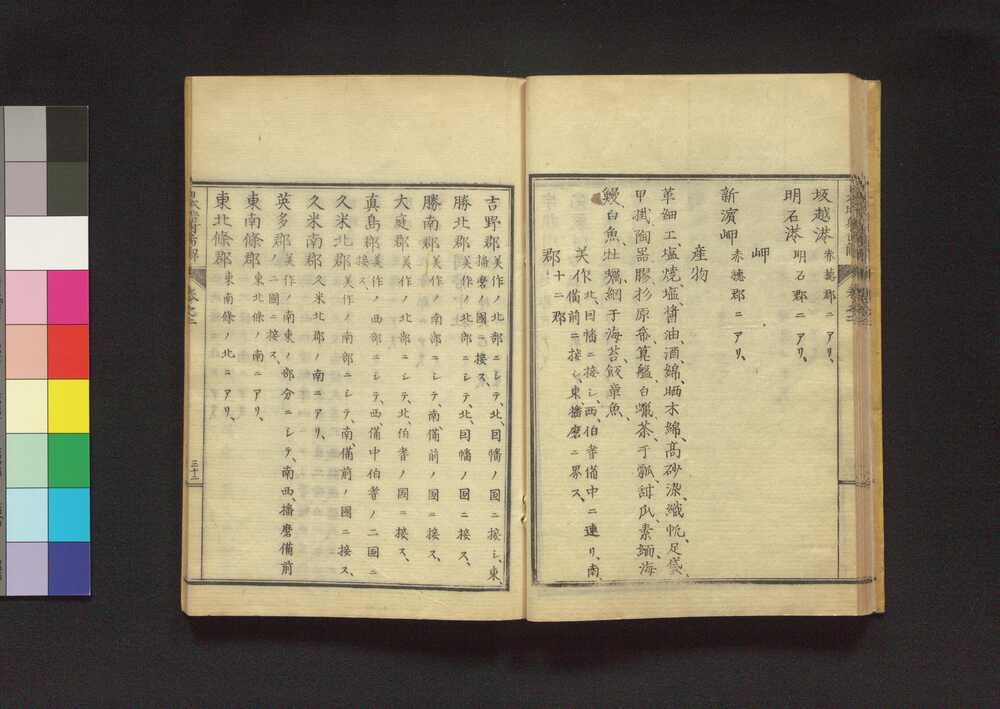 坂越港 赤穂郡ニアリ、
明石港 明石郡ニアリ、
岬
新濱岬 赤穂郡ニアリ、
産物
革細工、塩焼塩、醤油、酒、綿、晒木綿、高砂染、織帆、足袋、
甲掛、陶器、膠、杉原番篦、艦、白蠟、茶、干瓢、甜瓜、素麺、海
鰻、白魚、牡蠣、網干海苔、飯章魚、
美作 北、因幡ニ接シ、西伯耆備中ニ連リ、南、
備前ニ接シ、東、播磨ニ界ス、
郡 十二郡
吉野郡 美作ノ北部ニシテ、北、因幡ノ国ニ接シ、東、
播磨ノ国ニ接ス、
勝北郡 美作ノ北部ニシテ、北、因幡ノ国ニ接ス、
勝南郡 美作ノ南部ニシテ、南、備前ノ國ニ接ス、
大庭郡 美作ノ北部ニシテ、北、伯耆ノ國ニ接ス、
真島郡 美作ノ西部ニシテ、西、備中伯耆ノ二国ニ
接ス、
久米北郡 美作ノ南部ニシテ、南、備前ノ國ニ接ス、
久米南郡 久米北郡ノ南ニアリ、
英多郡 美作ノ南東ノ部分ニシテ、南西、播磨備前
ノ二國ニ接ス、
東南條郡 東北條ノ南ニアリ、
東北條郡 東南條ノ北ニアリ、
三十二